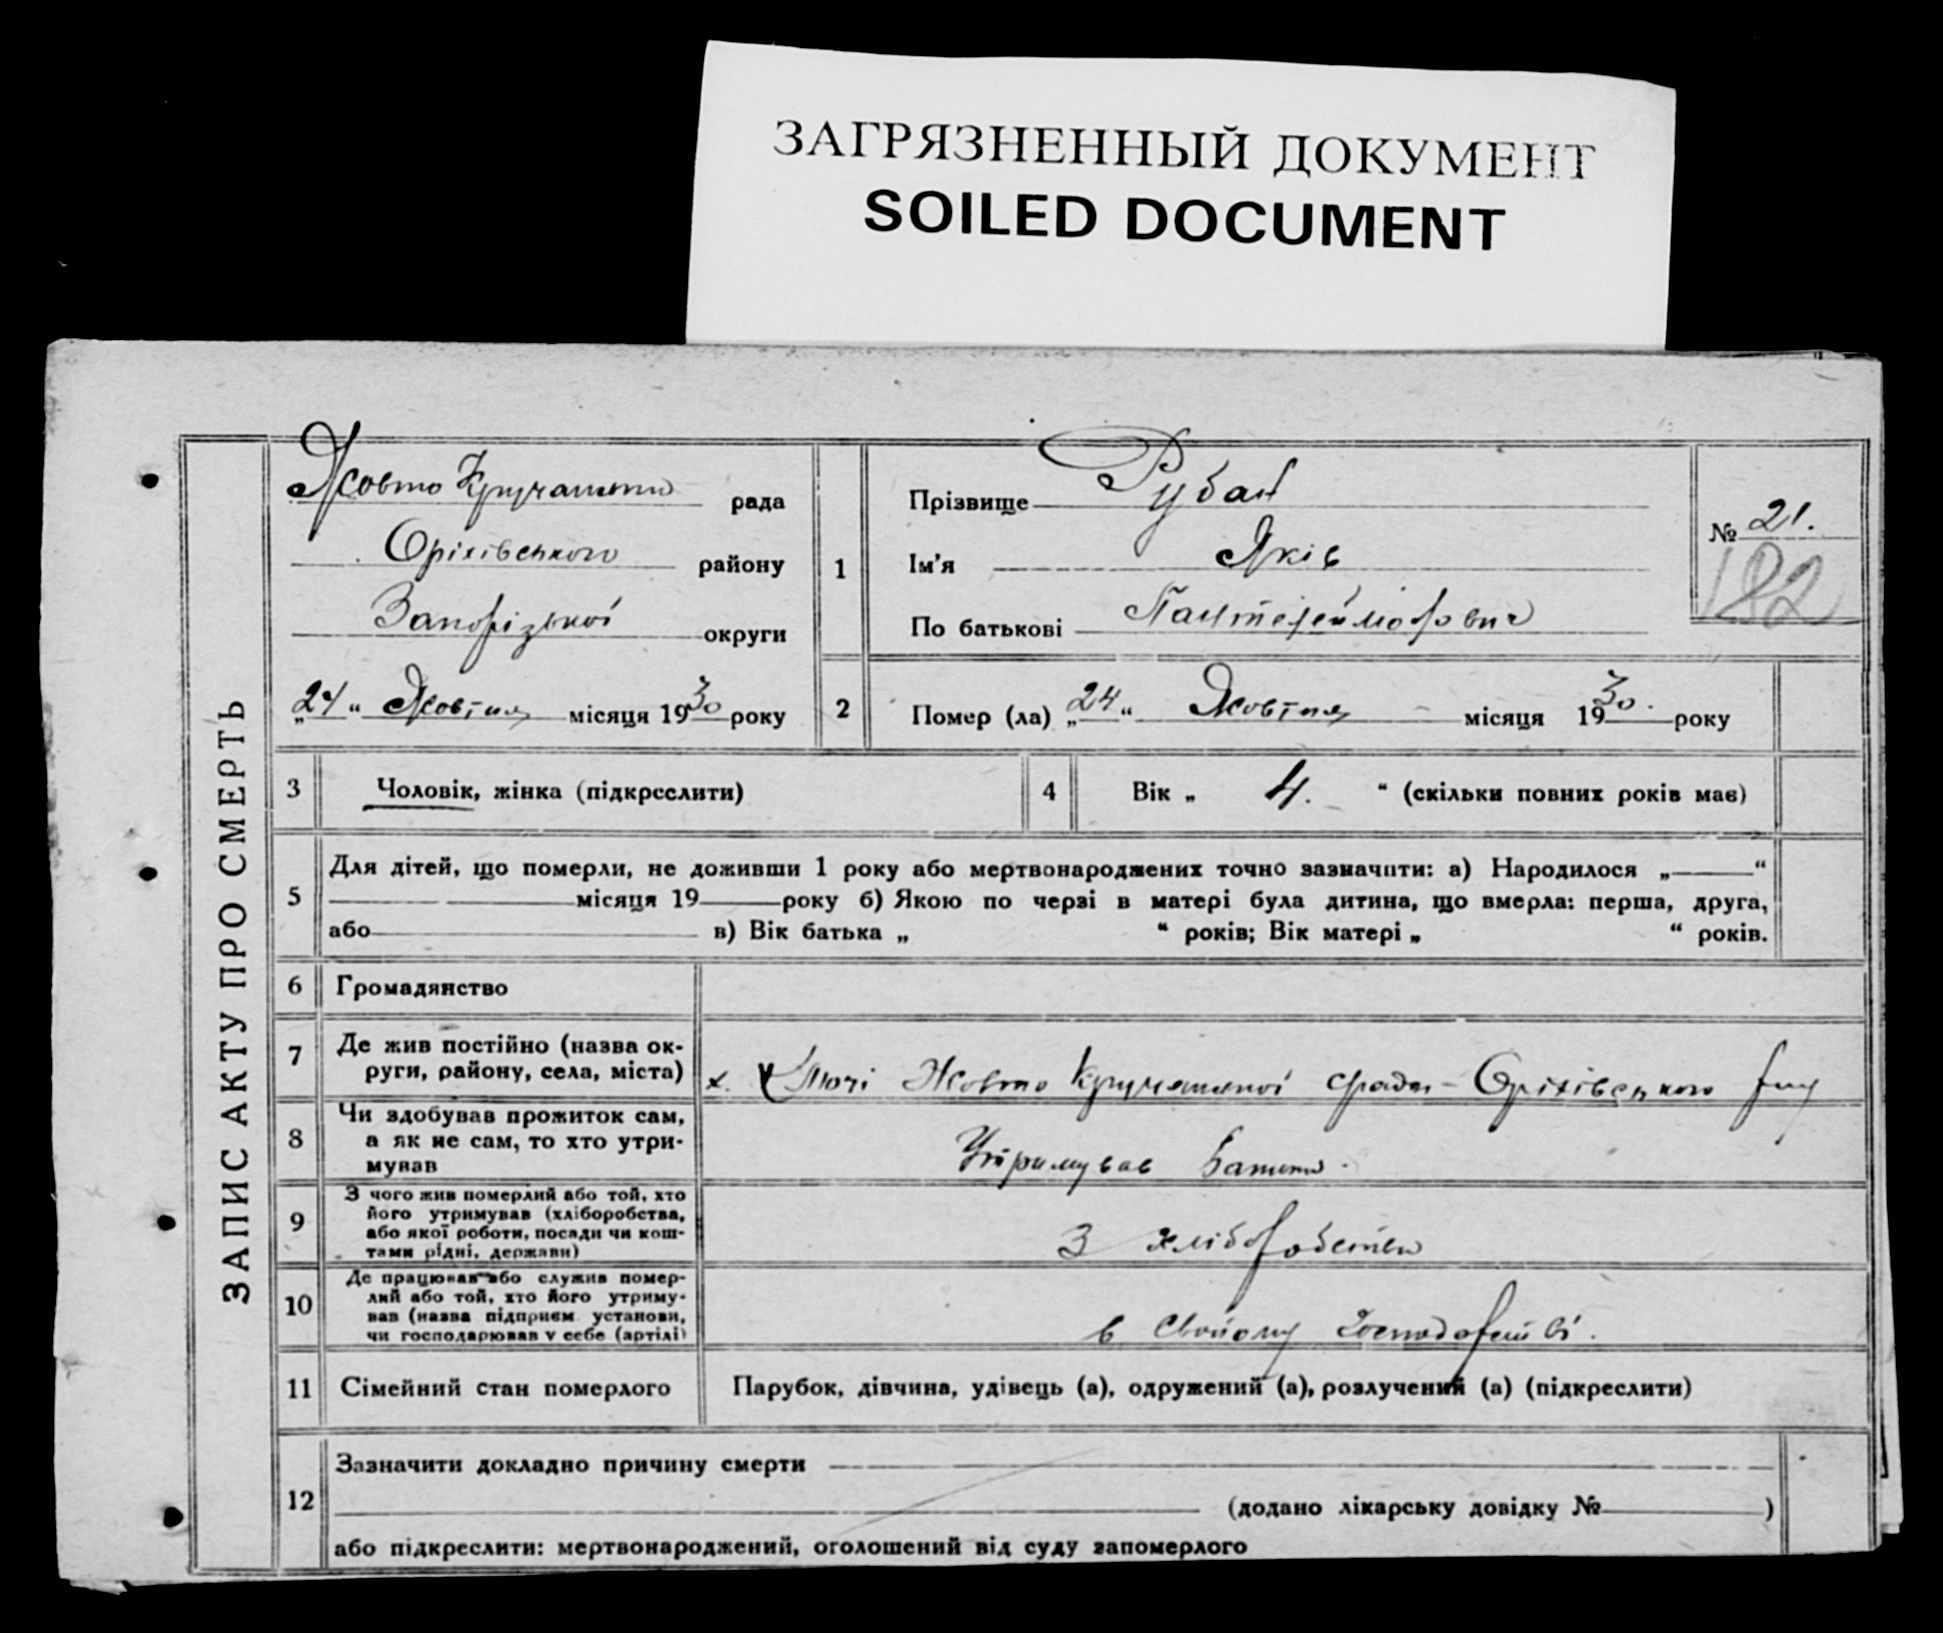 ЗАГРЯЗНЕННЫЙ ДОКУМЕНТ
SOILED DOCUMENT
ЗАПИС АКТУ ПРО СМЕРТЬ
Жовто рада
Оріхівського району
Запорізької округи
„24“ Жовтня місяця 1930 року
1
Прізвище Рубан
Ім'я Яків
По батькові Пантелеймонович
№ 21.
182
2
Помер (ла) „24“ Жовтня місяця 1930. року
3
Чоловік, жінка (підкреслити)
4
Вік „ 4. “ (скільки повних років має)
5
Для дітей, що померли, не доживши 1 року або мертвонароджених точно зазначити: а) Народилося „ “
місяця 19 року б) Якою по черзі в матері була дитина, що вмерла: перша, друга,
або в) Вік батька „ “ років; Вік матері „ “ років.
6
Громадянство
7
Де жив постійно (назва ок-
руги, району, села, міста)
х. Жовто Оріхівського
8
Чи здобував прожиток сам,
а як не сам, то хто утри-
мував
Утримував Батько.
9
З чого жив померлий або той, хто
його утримував (хліборобства,
або якої роботи, посади чи кош-
тами рідні, держави)
З хліборобства
10
Де працював або служив помер-
лий або той, хто його утриму-
вав (назва підприєм. установи,
чи господарював у себе (артілі)
в своїому господарстві.
11
Сімейний стан померлого
Парубок, дівчина, удівець (а), одружений (а), розлучений (а) (підкреслити)
12
Зазначити докладно причину смерти
(додано лікарську довідку № )
або підкреслити: мертвонароджений, оголошений від суду запомерлого